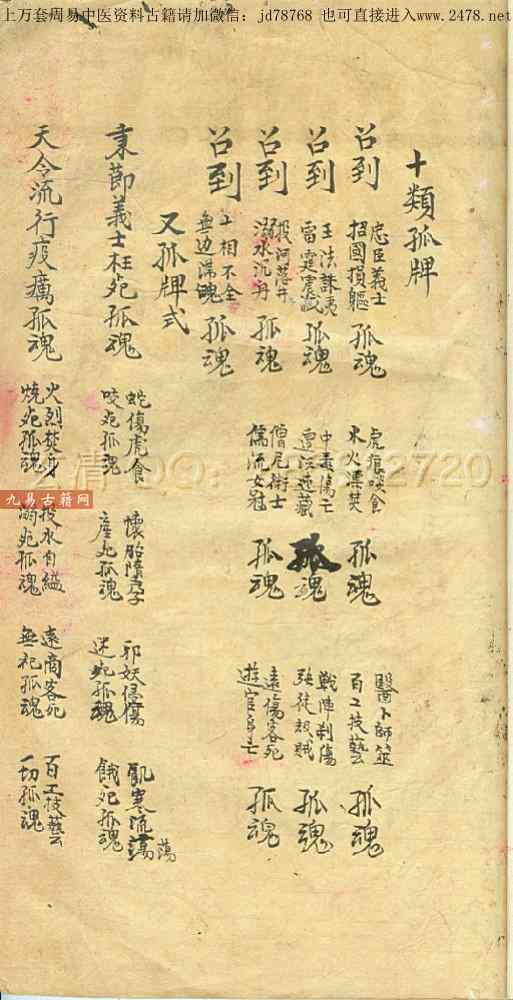 上万套周易中医资料古籍请加微信: jd78768 也可直接进入www.2478.net
十類孤牌
召到 忠臣義士 招國損軀 孤魂 虎狼啖食 水火漂焚 孤魂 醫卜師筮 百工技藝 孤魂
召到 王法誅夷 雷霆震滅 孤魂 中毒傷亡 孤魂 戰陣刑傷 孤魂
召到 投河落井 溺水沉舟 孤魂 僧尼術士 儒流女冠 孤魂 遠傷客死 遊宦身亡 孤魂
召到 工相不全 無边滯魄 孤魂
又孤牌式
秉節義士枉死孤魂 蛇傷虎食 咬死孤魂 懷胎墮孕 產死孤魂 邪妖侵傷 迷死孤魂 飢寒流蕩 餓死孤魂 蕩
天令流行疫癘孤魂 火烈焚身 燒死孤魂 投水自縊 溺死孤魂 遠商客死 無祀孤魂 百工技藝 一切孤魂
九易古籍网
2720